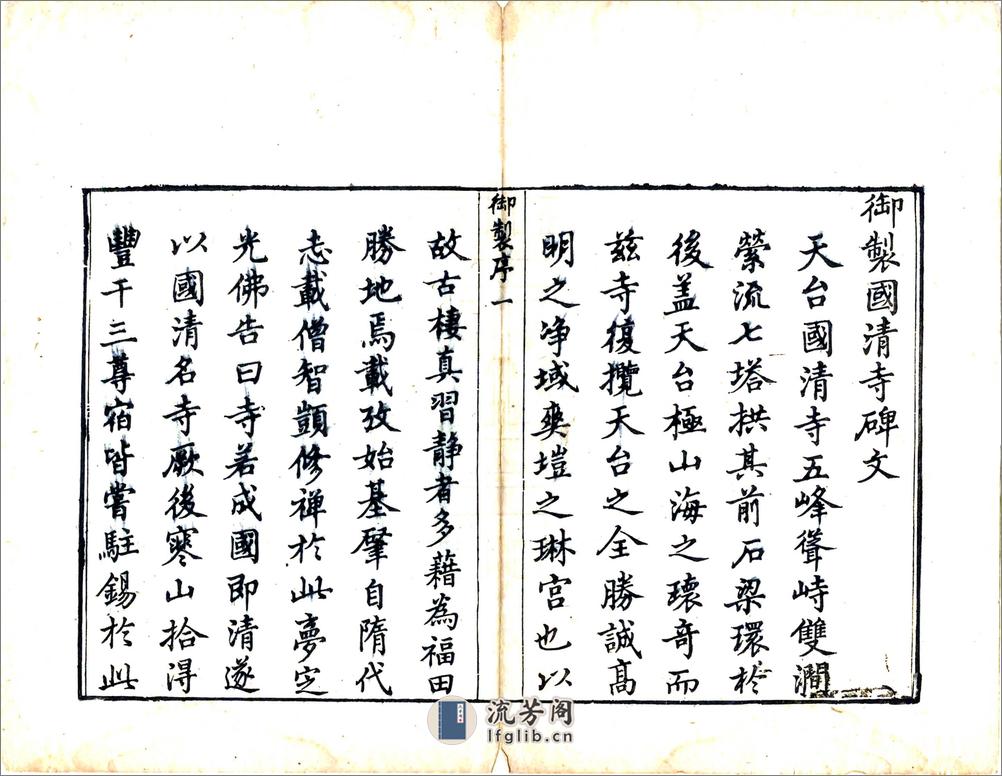 御製國清寺碑文
天台國清寺五峰聳峙雙澗
縈流七塔拱其前石梁環於
後盖天台極山海之瓌竒而
兹寺復攬天台之全勝誠高
明之净域爽塏之琳宫也以
御製序一
故古棲真習静者多藉為福田
勝地焉載攷始基肇自隋代
志載僧智顗修禅於此夢定
光佛告曰寺若成國即清遂
以國清名寺厥後寒山拾得
豐干三尊宿皆嘗駐錫於此
流芳阁
lfglib.cn